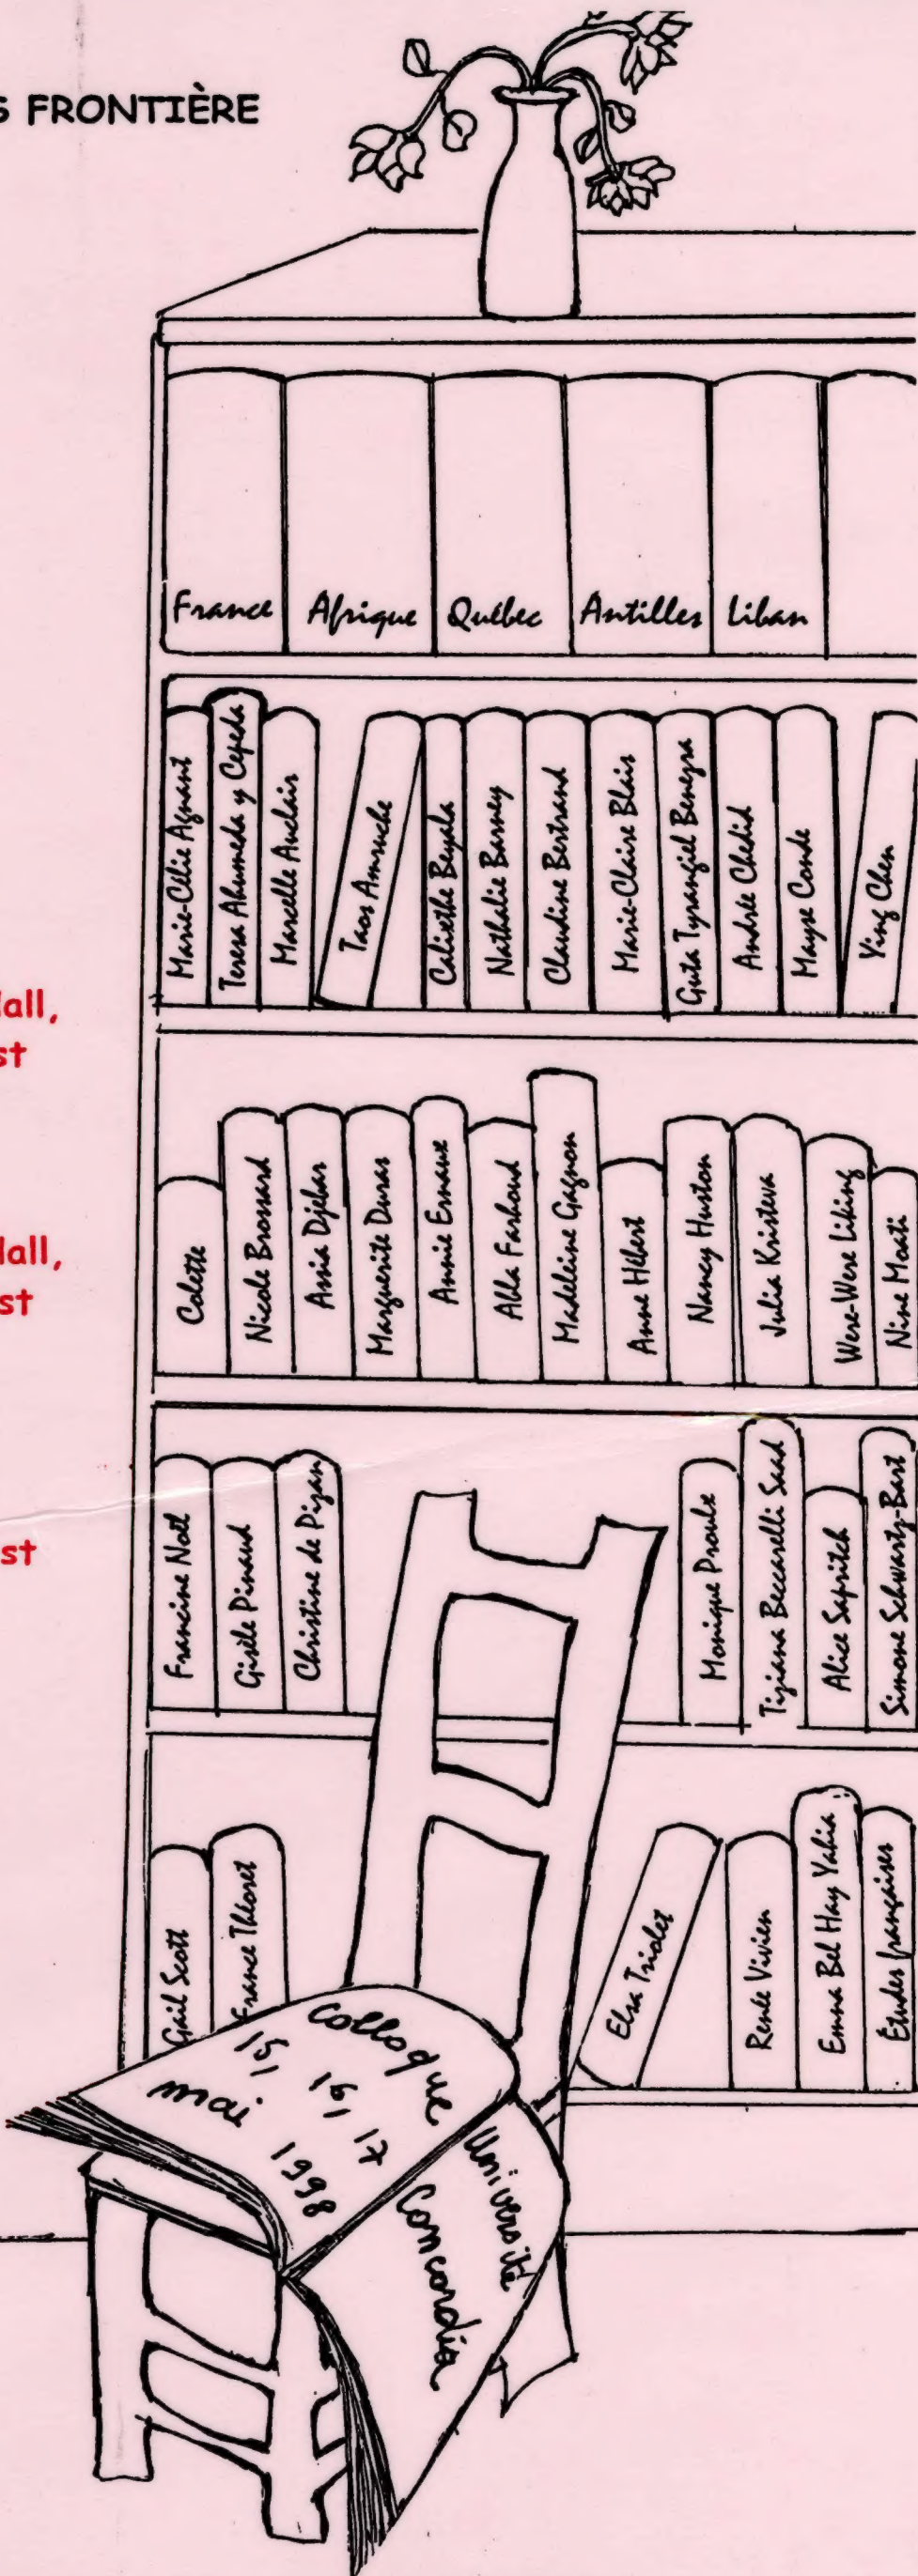 S FRONTIÈRE
France
Afrique
Québec
Antilles
Liban
Marie-Célie Agnant
Teresa Ahumeda y Cepeda
Marcelle Auclair
Taos Amrouche
Calixthe Beyala
Nathalie Barney
Claudine Bertrand
Marie-Claire Blais
Guta Tyrangiel Benezra
Andrée Chedid
Mayse Conde
Ying Chen
Hall,
st
Colette
Nicole Brossard
Assia Djebar
Marguerite Duras
Annie Ernaux
Abla Farhoud
Madeleine Gagnon
Anne Hébert
Nancy Huston
Julia Kristeva
Were-Were Liking
Nine Moati
Hall,
st
Francine Noël
Gisèle Pineau
Christine de Pizan
Monique Proulx
Tiziana Beccarelli Saad
Alice Sapritch
Simone Schwartz-Bart
st
Gail Scott
France Théoret
Elsa Triolet
Renée Vivien
Emna Bel Hay Yahia
Études françaises
Colloque
15, 16, 17
mai 1998
Université
Concordia